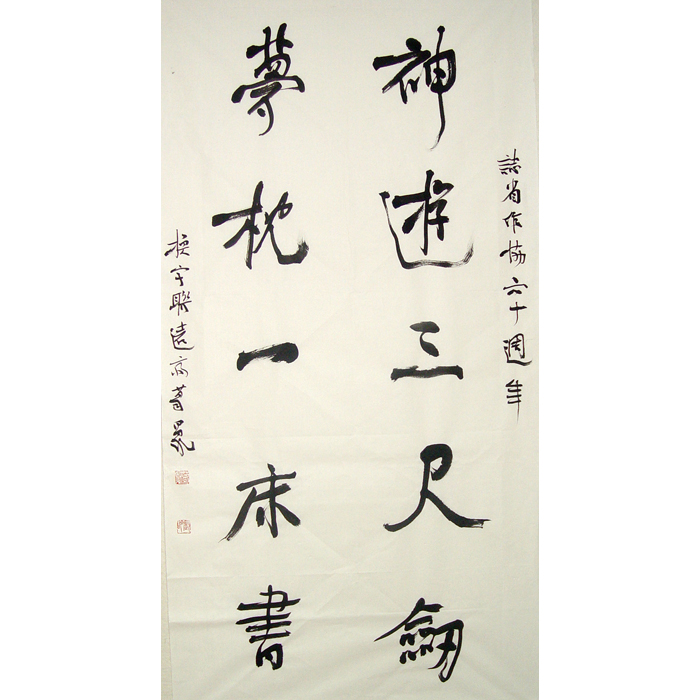 誌省作協六十週年
神遊三尺劍
夢枕一床書
換字聯遠高